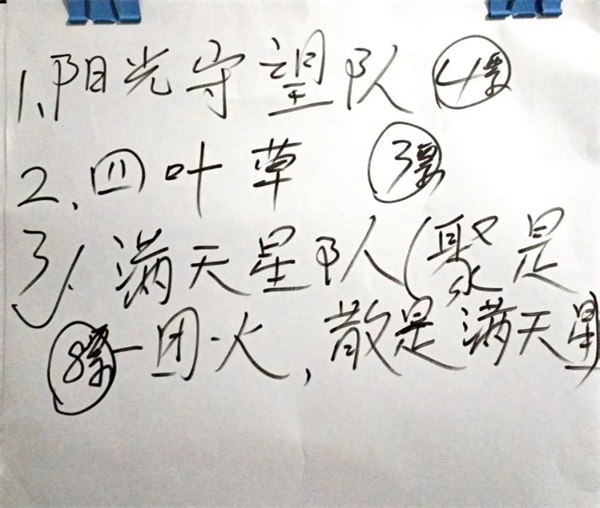 1、阳光守望队 4票
2、四叶草 3票
3、满天星队(聚是
8票 一团火,散是满天星)